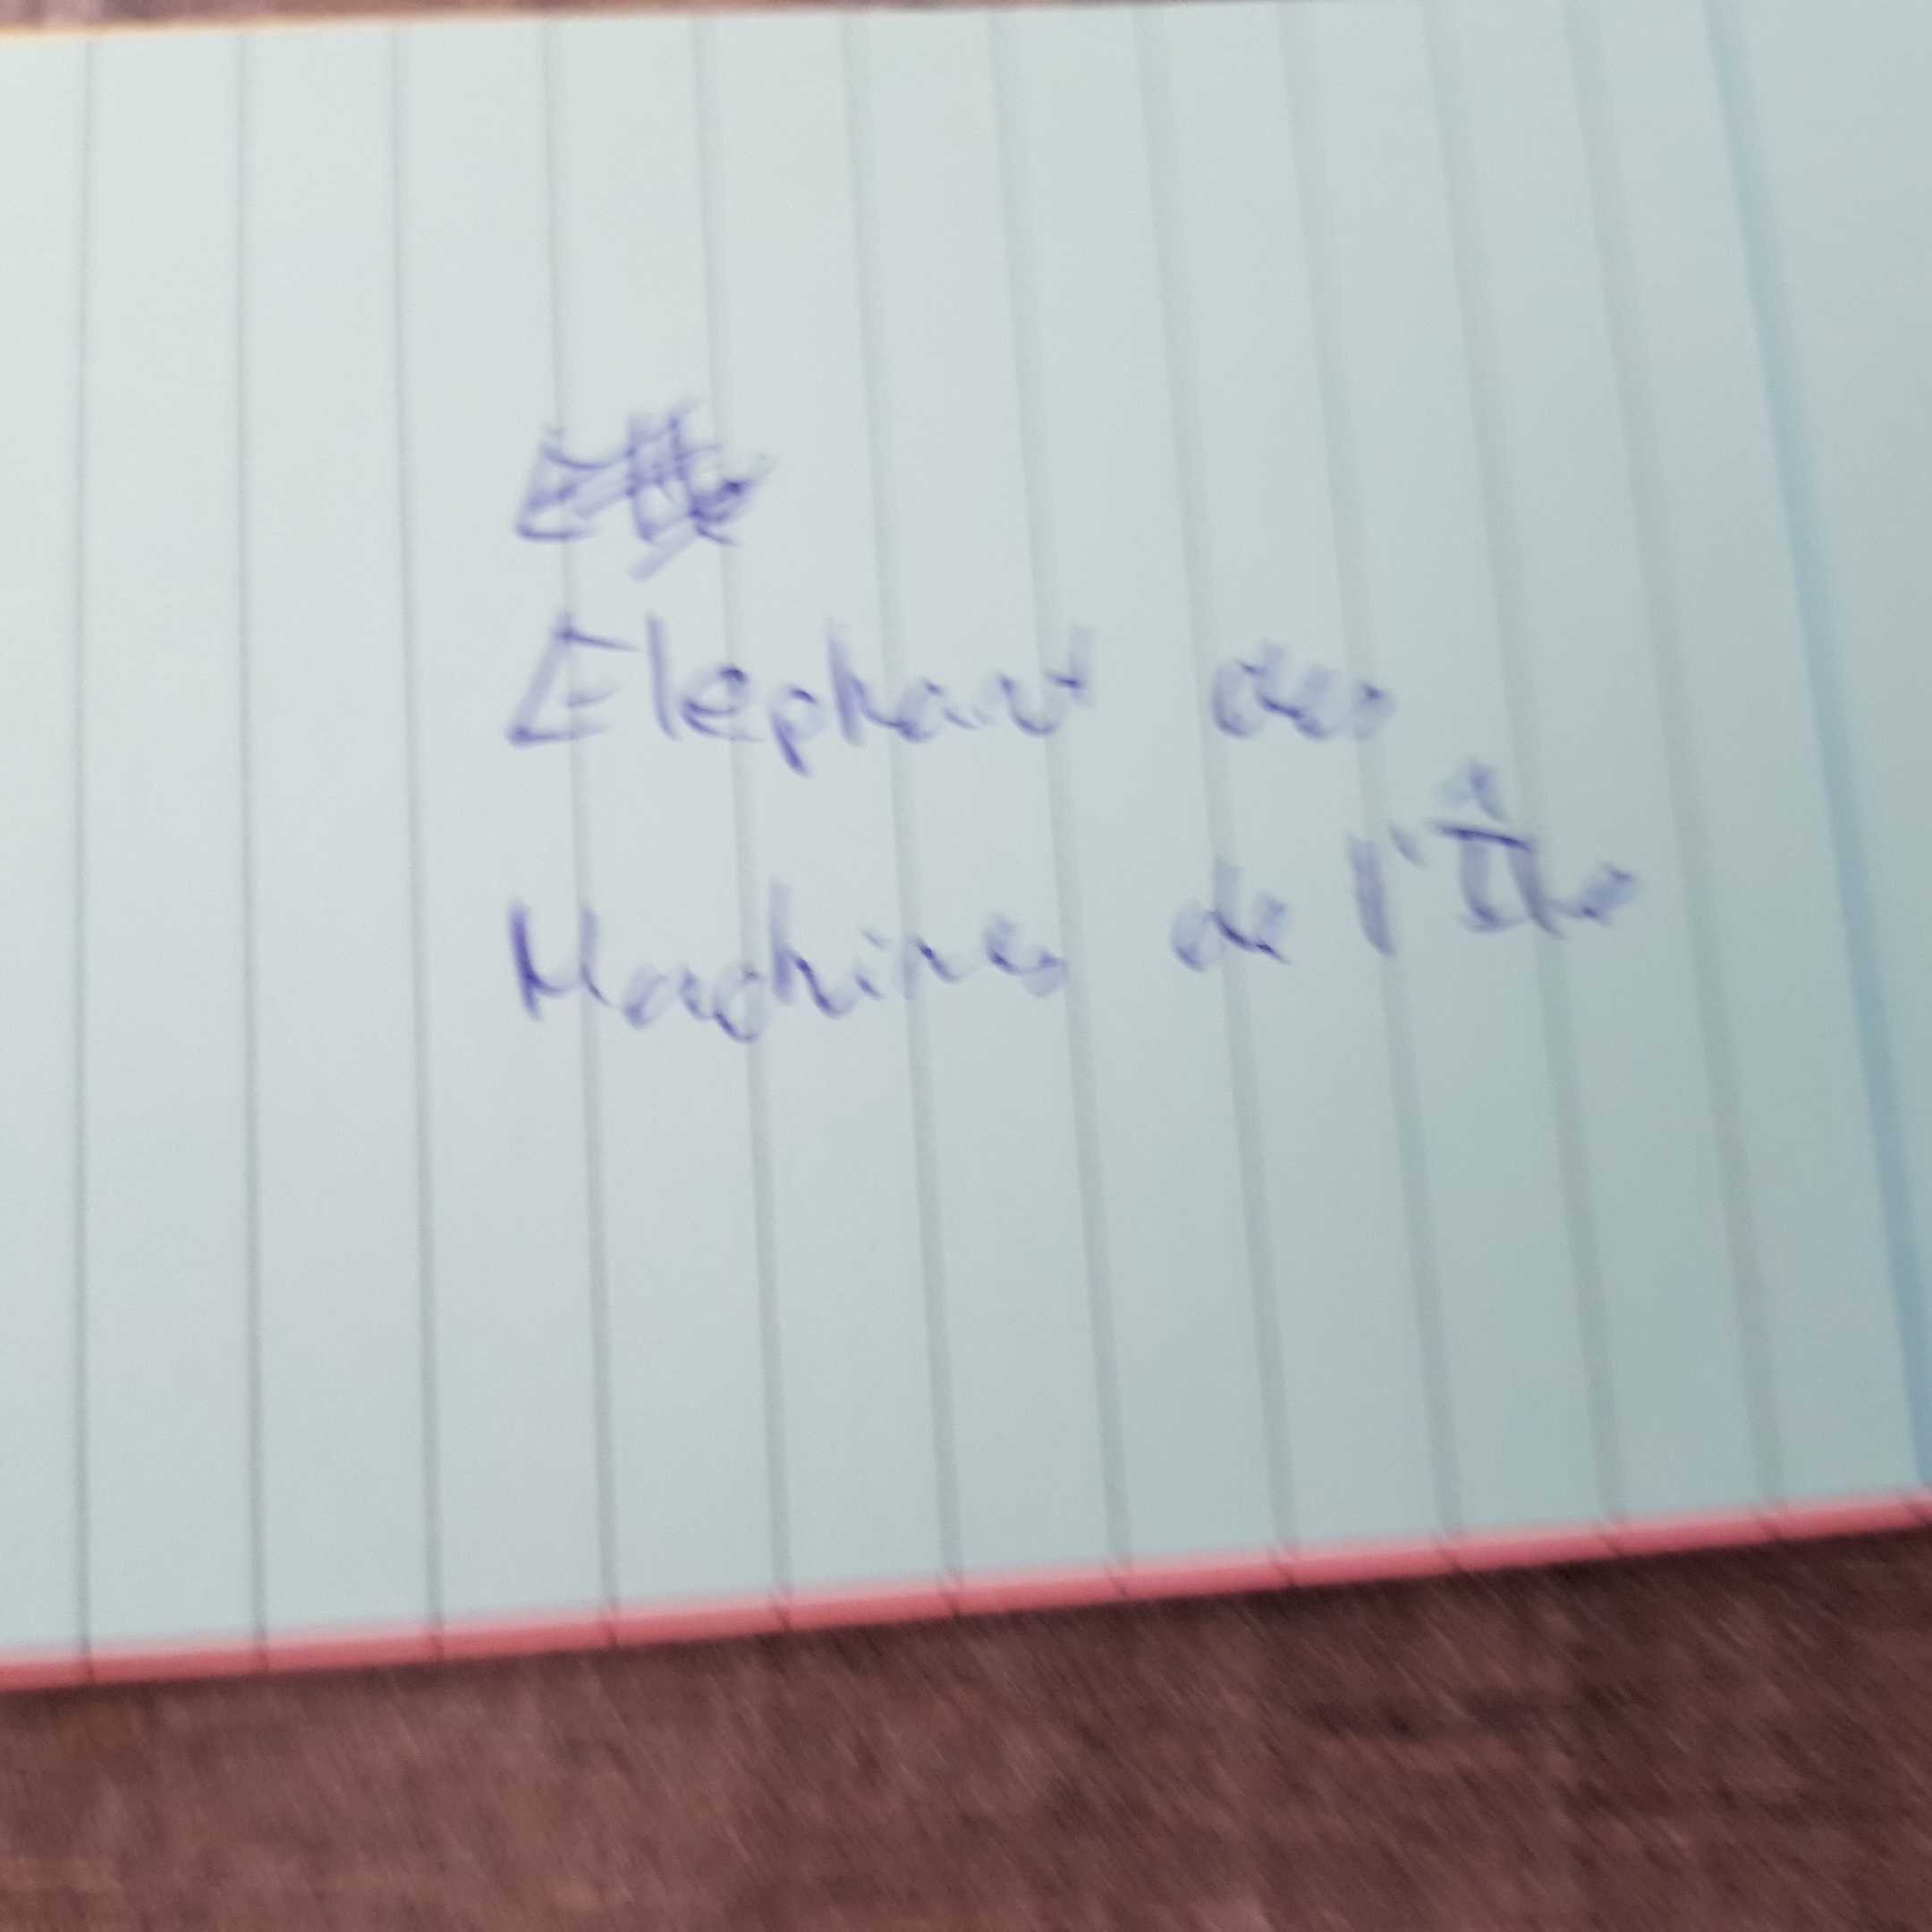 Elephant des
Machines de l'Île